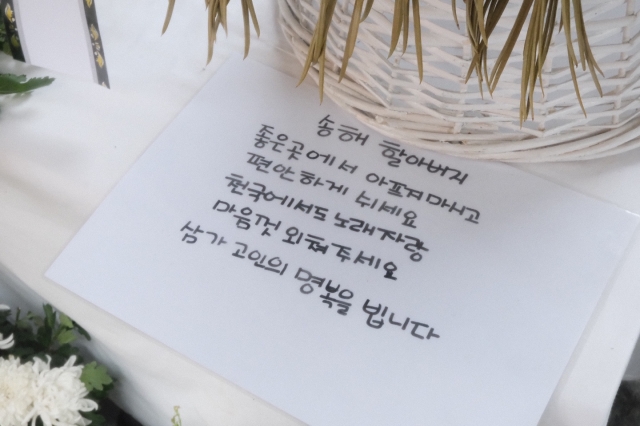 송해 할아버지
좋은곳에서 아프지마시고
편안하게 쉬세요
천국에서도 노래자랑
마음껏 외쳐주세요
삼가 고인의 명복을 빕니다